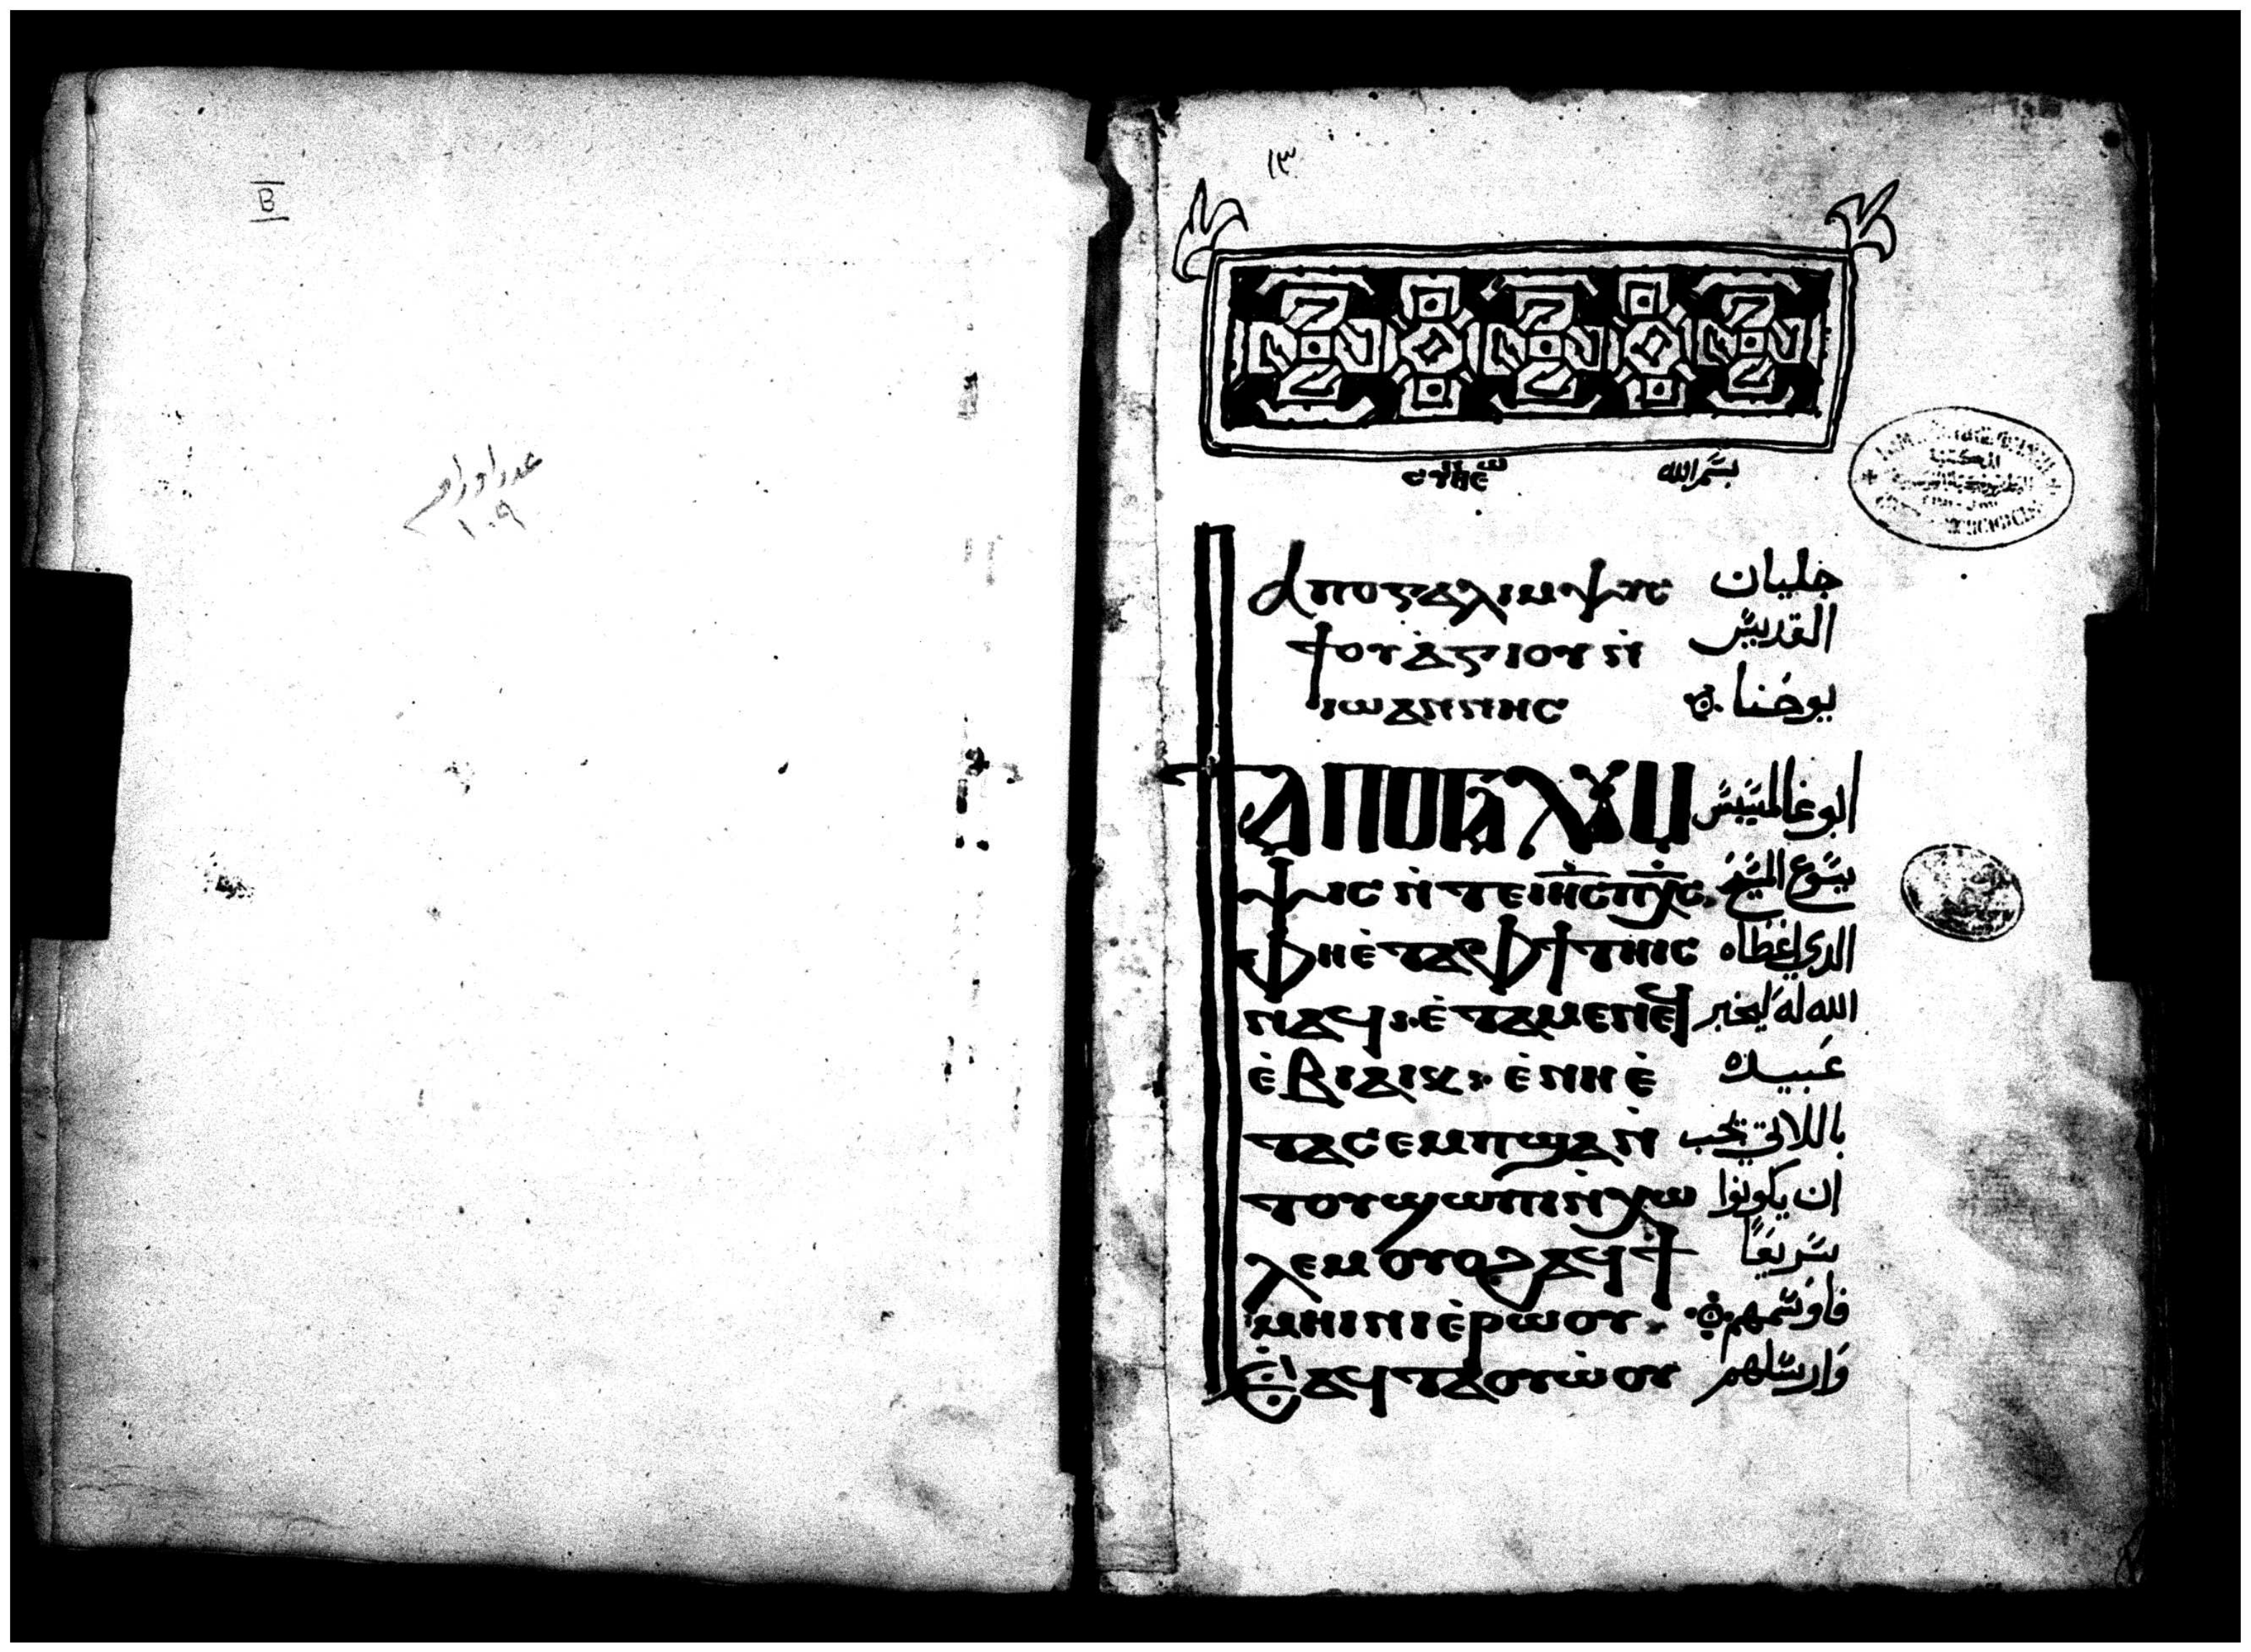 B
عدد اوراقه
١٠٩
١٣
ⲥⲑⲏⲉ̅ⲱ̅ بسم الله
ⲁⲡⲟⲅⲁⲗⲩⲙⲯⲓⲥ جليان
ϯⲟⲩⲁ̀ⲅⲓⲟⲩ ⲛ̀ القديس
ⲓⲱⲁⲛⲛⲏⲥ يوحنا
ⲁⲡⲟⲕⲁⲗⲩⲙ ابوغالمسيس
ⲯⲓⲥ ⲛ̀ⲧⲉ ⲓⲏⲥ ⲡⲭⲥ يسوع المسيح
ⲫⲏⲉ̀ⲧⲁⲫϯ ⲧⲏⲓⲥ الذي اعطاه
ⲛⲁϥ ⲉ̀ⲧⲁⲙⲉⲛⲉϥ الله له ليخبر
ⲉ̀ⲃⲓⲁⲓⲕ ⲉ̀ⲛⲏⲉ̀ عبيده
ⲧⲁⲥⲉⲙⲡϣⲁ ⲛ̀ باللاتي يجب
ⲧⲟⲩϣⲱⲡⲓ ⲛ̀ⲭⲱ ان يكونوا
ⲗⲉⲙ ⲟⲩⲟϩ ⲁϥϯ سريعًا
ⲙⲏⲓⲛⲓ ⲉ̀ⲣⲱⲟⲩ فاوسمهم
ⲉ̀ⲁϥⲧⲁⲟⲩⲱ̀ⲟⲩ وارسلهم